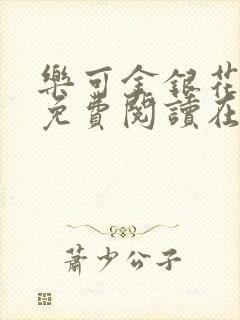 樂可金銀花
免費閱讀在
蕭少公子